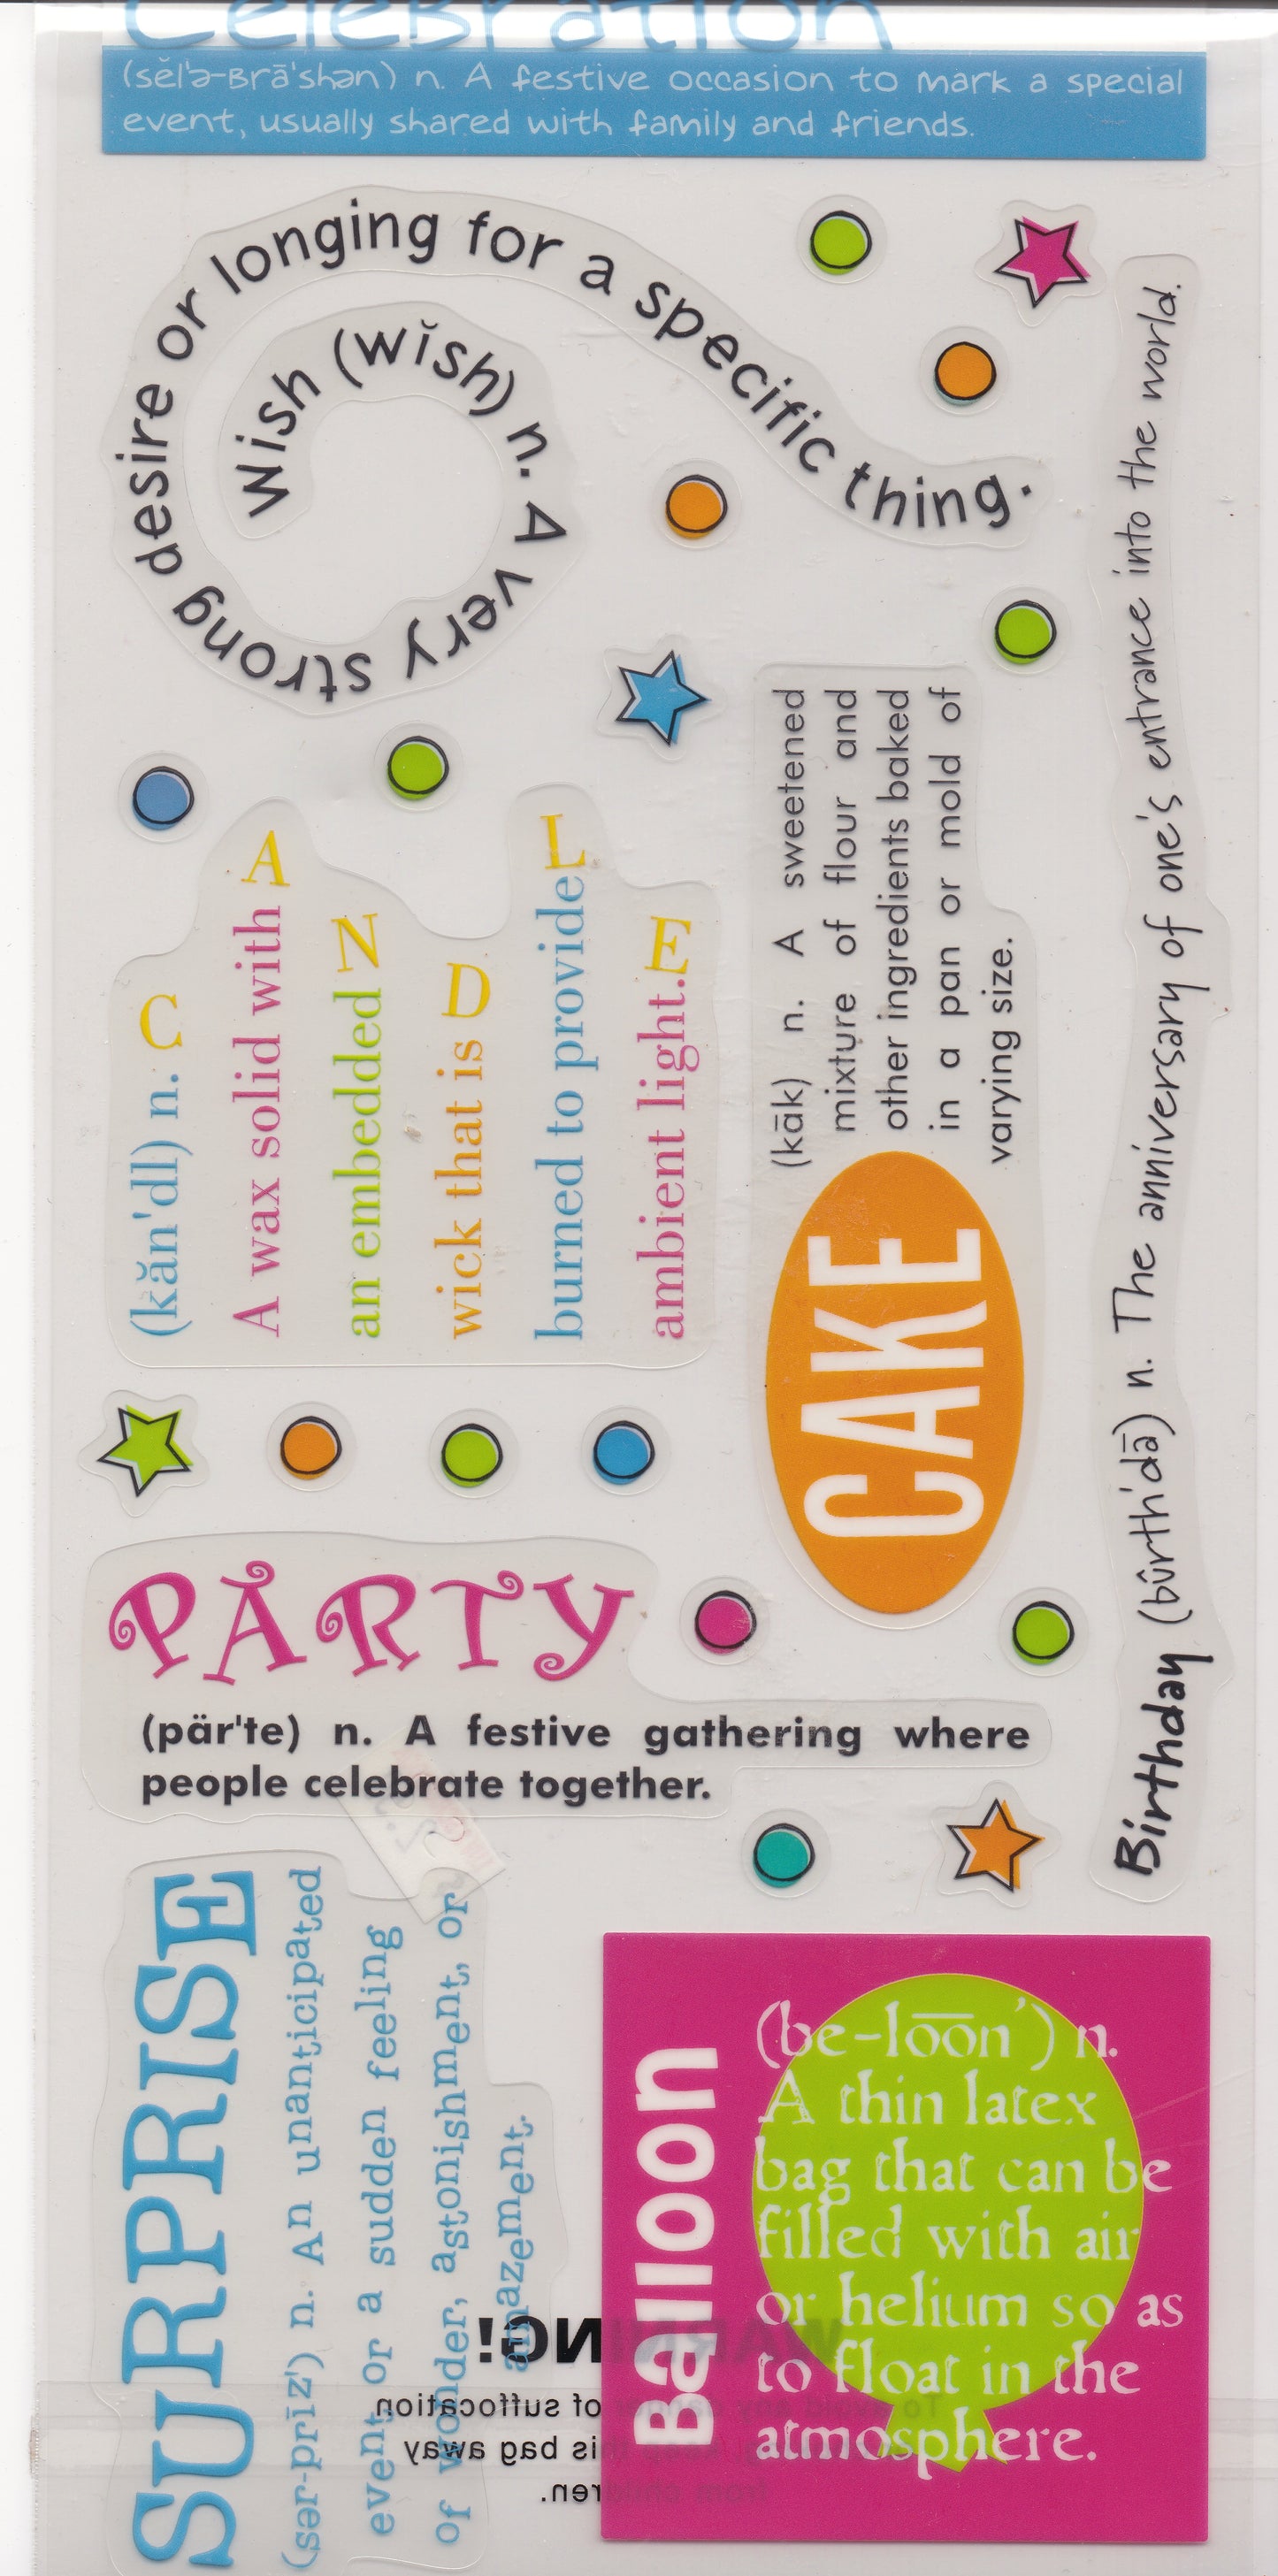 Celebration
(sĕl'ə-Brā'shən) n. A festive occasion to mark a special
event, usually shared with family and friends.
Wish (wĭsh) n. A very strong desire or longing for a specific thing.
CANDLE
(kăn'dl) n.
A wax solid with
an embedded
wick that is
burned to provide
ambient light.
CAKE
(kāk) n. A sweetened
mixture of flour and
other ingredients baked
in a pan or mold of
varying size.
Birthday (bûrth'dā) n. The anniversary of one's entrance into the world.
PARTY
(pär'te) n. A festive gathering where
people celebrate together.
SURPRISE
(sər-prīz') n. An unanticipated
event or a sudden feeling
of wonder, astonishment, or
amazement.
Balloon
(be-lōōn') n.
A thin latex
bag that can be
filled with air
or helium so as
to float in the
atmosphere.
WARNING!
To avoid any danger of suffocation
keep this bag away
from children.